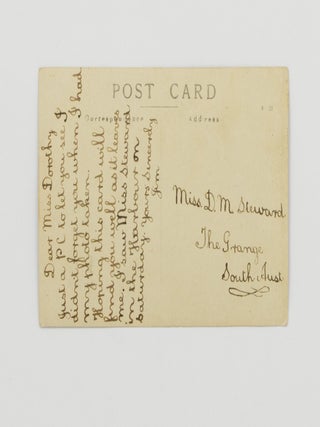 POST CARD
Correspondence
Address
Dear Miss Dorothy
Just a PC to let you see I
didnt forget you when I had
my photo taken.
Hoping this card will
find you well as it leaves
me. I saw Miss Steward
in the Harbour on
Saturday Yours Sincerely
Jim
Miss D. M Steward
The Grange
South